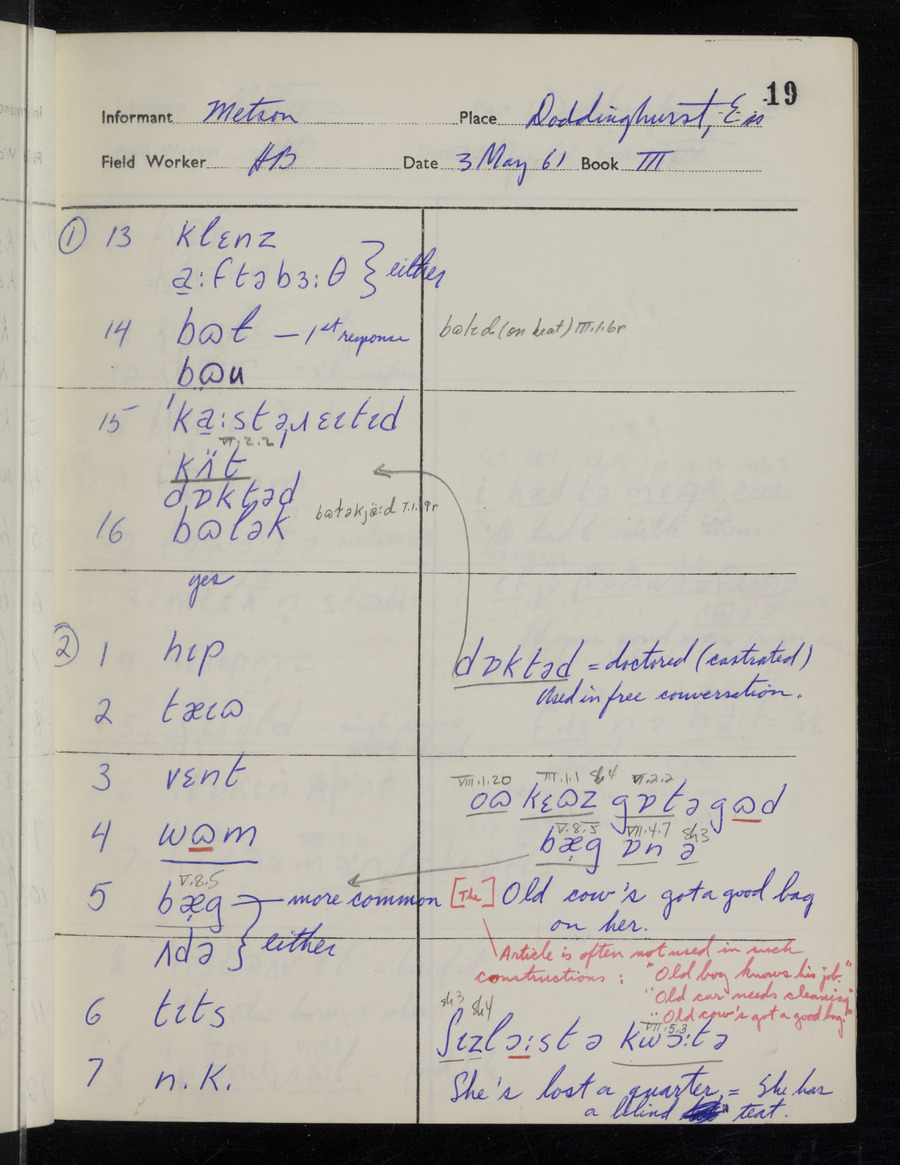 19
Informant Metson Place Doddinghurst, Ess
Field Worker HB Date 3 May 61 Book III
① 13 klɛnz
a̠:ftəbɜ:θ } either
14 bɷl — 1st response
bɷld (on heat) III.1.6r
bɷu
15 'ka̠:stəˌɹɛɪtɪd
VI.2.2
kʌ̈t
dɒktəd
16 bɷlək
yes
② 1 hɪp
dɒktəd = doctored (castrated)
Used in free conversation.
2 tæɪɷ
3 vɛnt
VIII.1.20 III.1.1 Sh4 VI.2.2
oɷ kɛɷz gɒt ə gɷd
4 wɷm
V.8.5 VII.4.7 Sh3
bæ̣g ɒn ə
V.8.5
5 bæ̣g — more common
[The] Old cow's got a good bag
on her.
ʌdə } either
Article is often not used in such
constructions: "Old boy knows his job."
"Old car needs cleaning"
"Old cow's got a good bag."
6 tɪts
Sh3 Sh4
ʃɪz lɔ:st ə kwɔ:tə
VII.5.3
7 n.k.
She's lost a quarter, = She has
a blind teat.